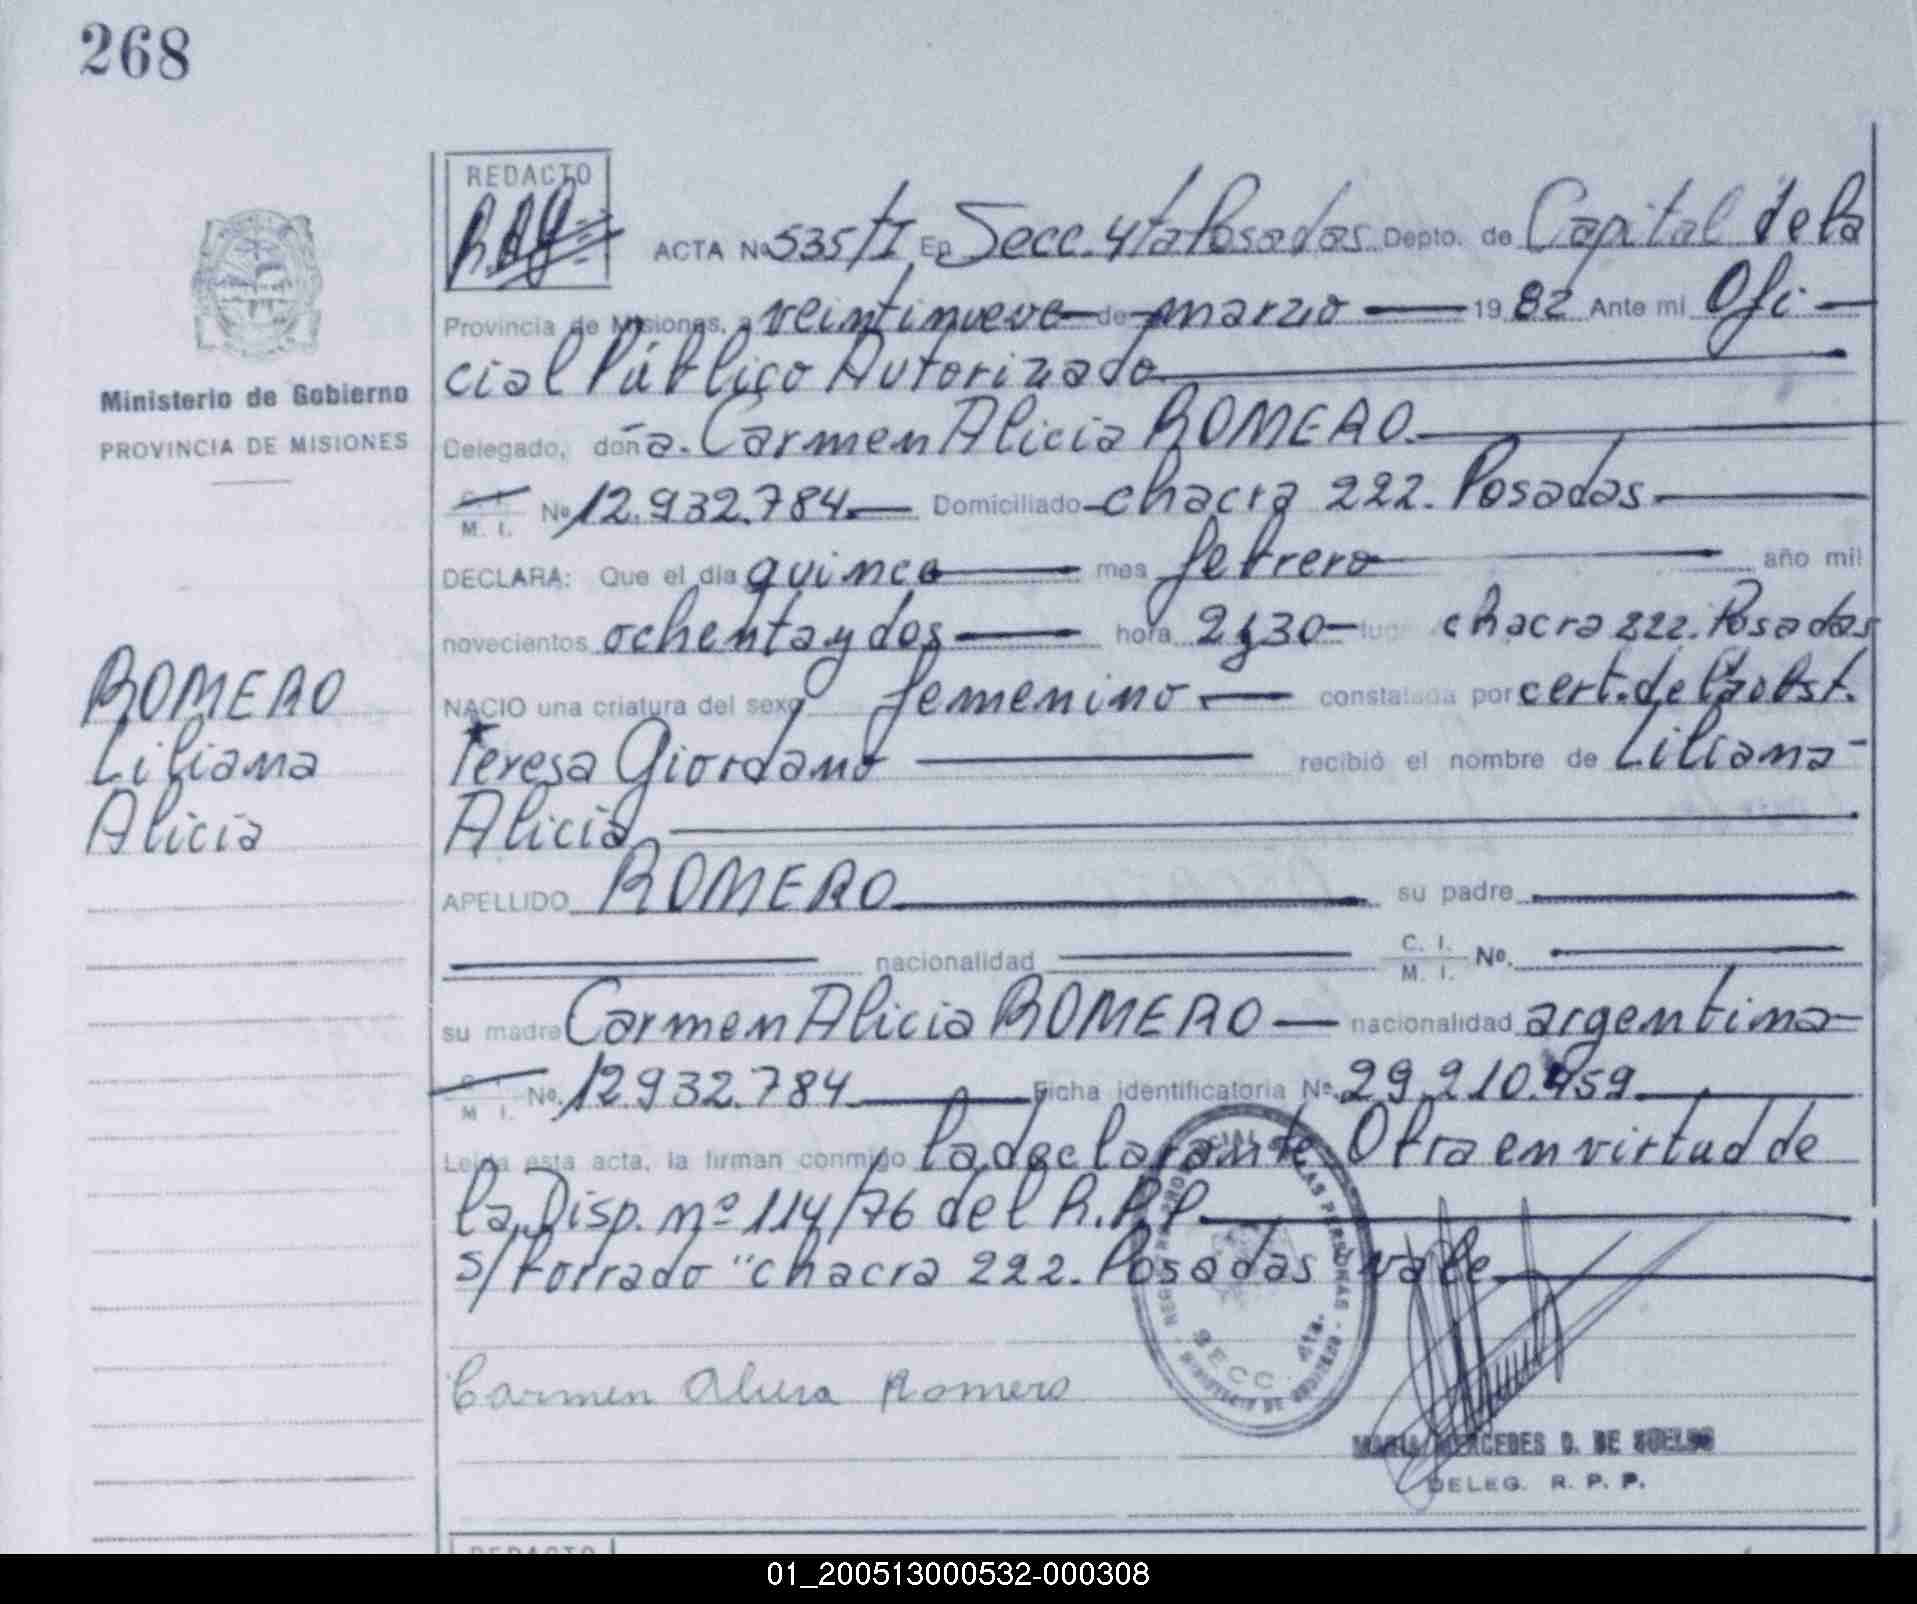 268
REDACTO
ACTA Nº 535/I En Secc. 4ta Posadas Depto. de Capital de la
Provincia de Misiones, a veintinueve de marzo 19 82 Ante mi Ofi
cial Público Autorizado
Delegado, doña. Carmen Alicia ROMERO
M. I. Nº 12.932.784 Domiciliado chacra 222. Posadas
DECLARA: Que el día quince mes febrero año mil
novecientos ochenta y dos hora 2,30 chacra 222. Posadas
NACIO una criatura del sexo femenino constatada por cert. de la obst.
Teresa Giordano recibió el nombre de Liliana
Alicia
APELLIDO ROMERO su padre
nacionalidad C. I. M. I. Nº.
su madre Carmen Alicia ROMERO nacionalidad argentina
M. I. Nº. 12.932.784 Ficha identificatoria Nº. 29.210.959
Leída esta acta, la firman conmigo la declarante Obra en virtud de
la Disp. nº 114/76 del R.P.P.
s/borrado "chacra 222. Posadas vale
Carmen Alicia Romero
SECC. 4ta.
MARIA MERCEDES D. DE SUELDO
DELEG. R. P. P.
Ministerio de Gobierno
PROVINCIA DE MISIONES
ROMERO
Liliana
Alicia
REDACTO
01_200513000532-000308